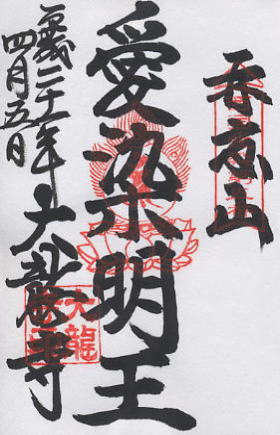 山
愛染明王
平成二十一年
四月五日
大龍寺
大龍